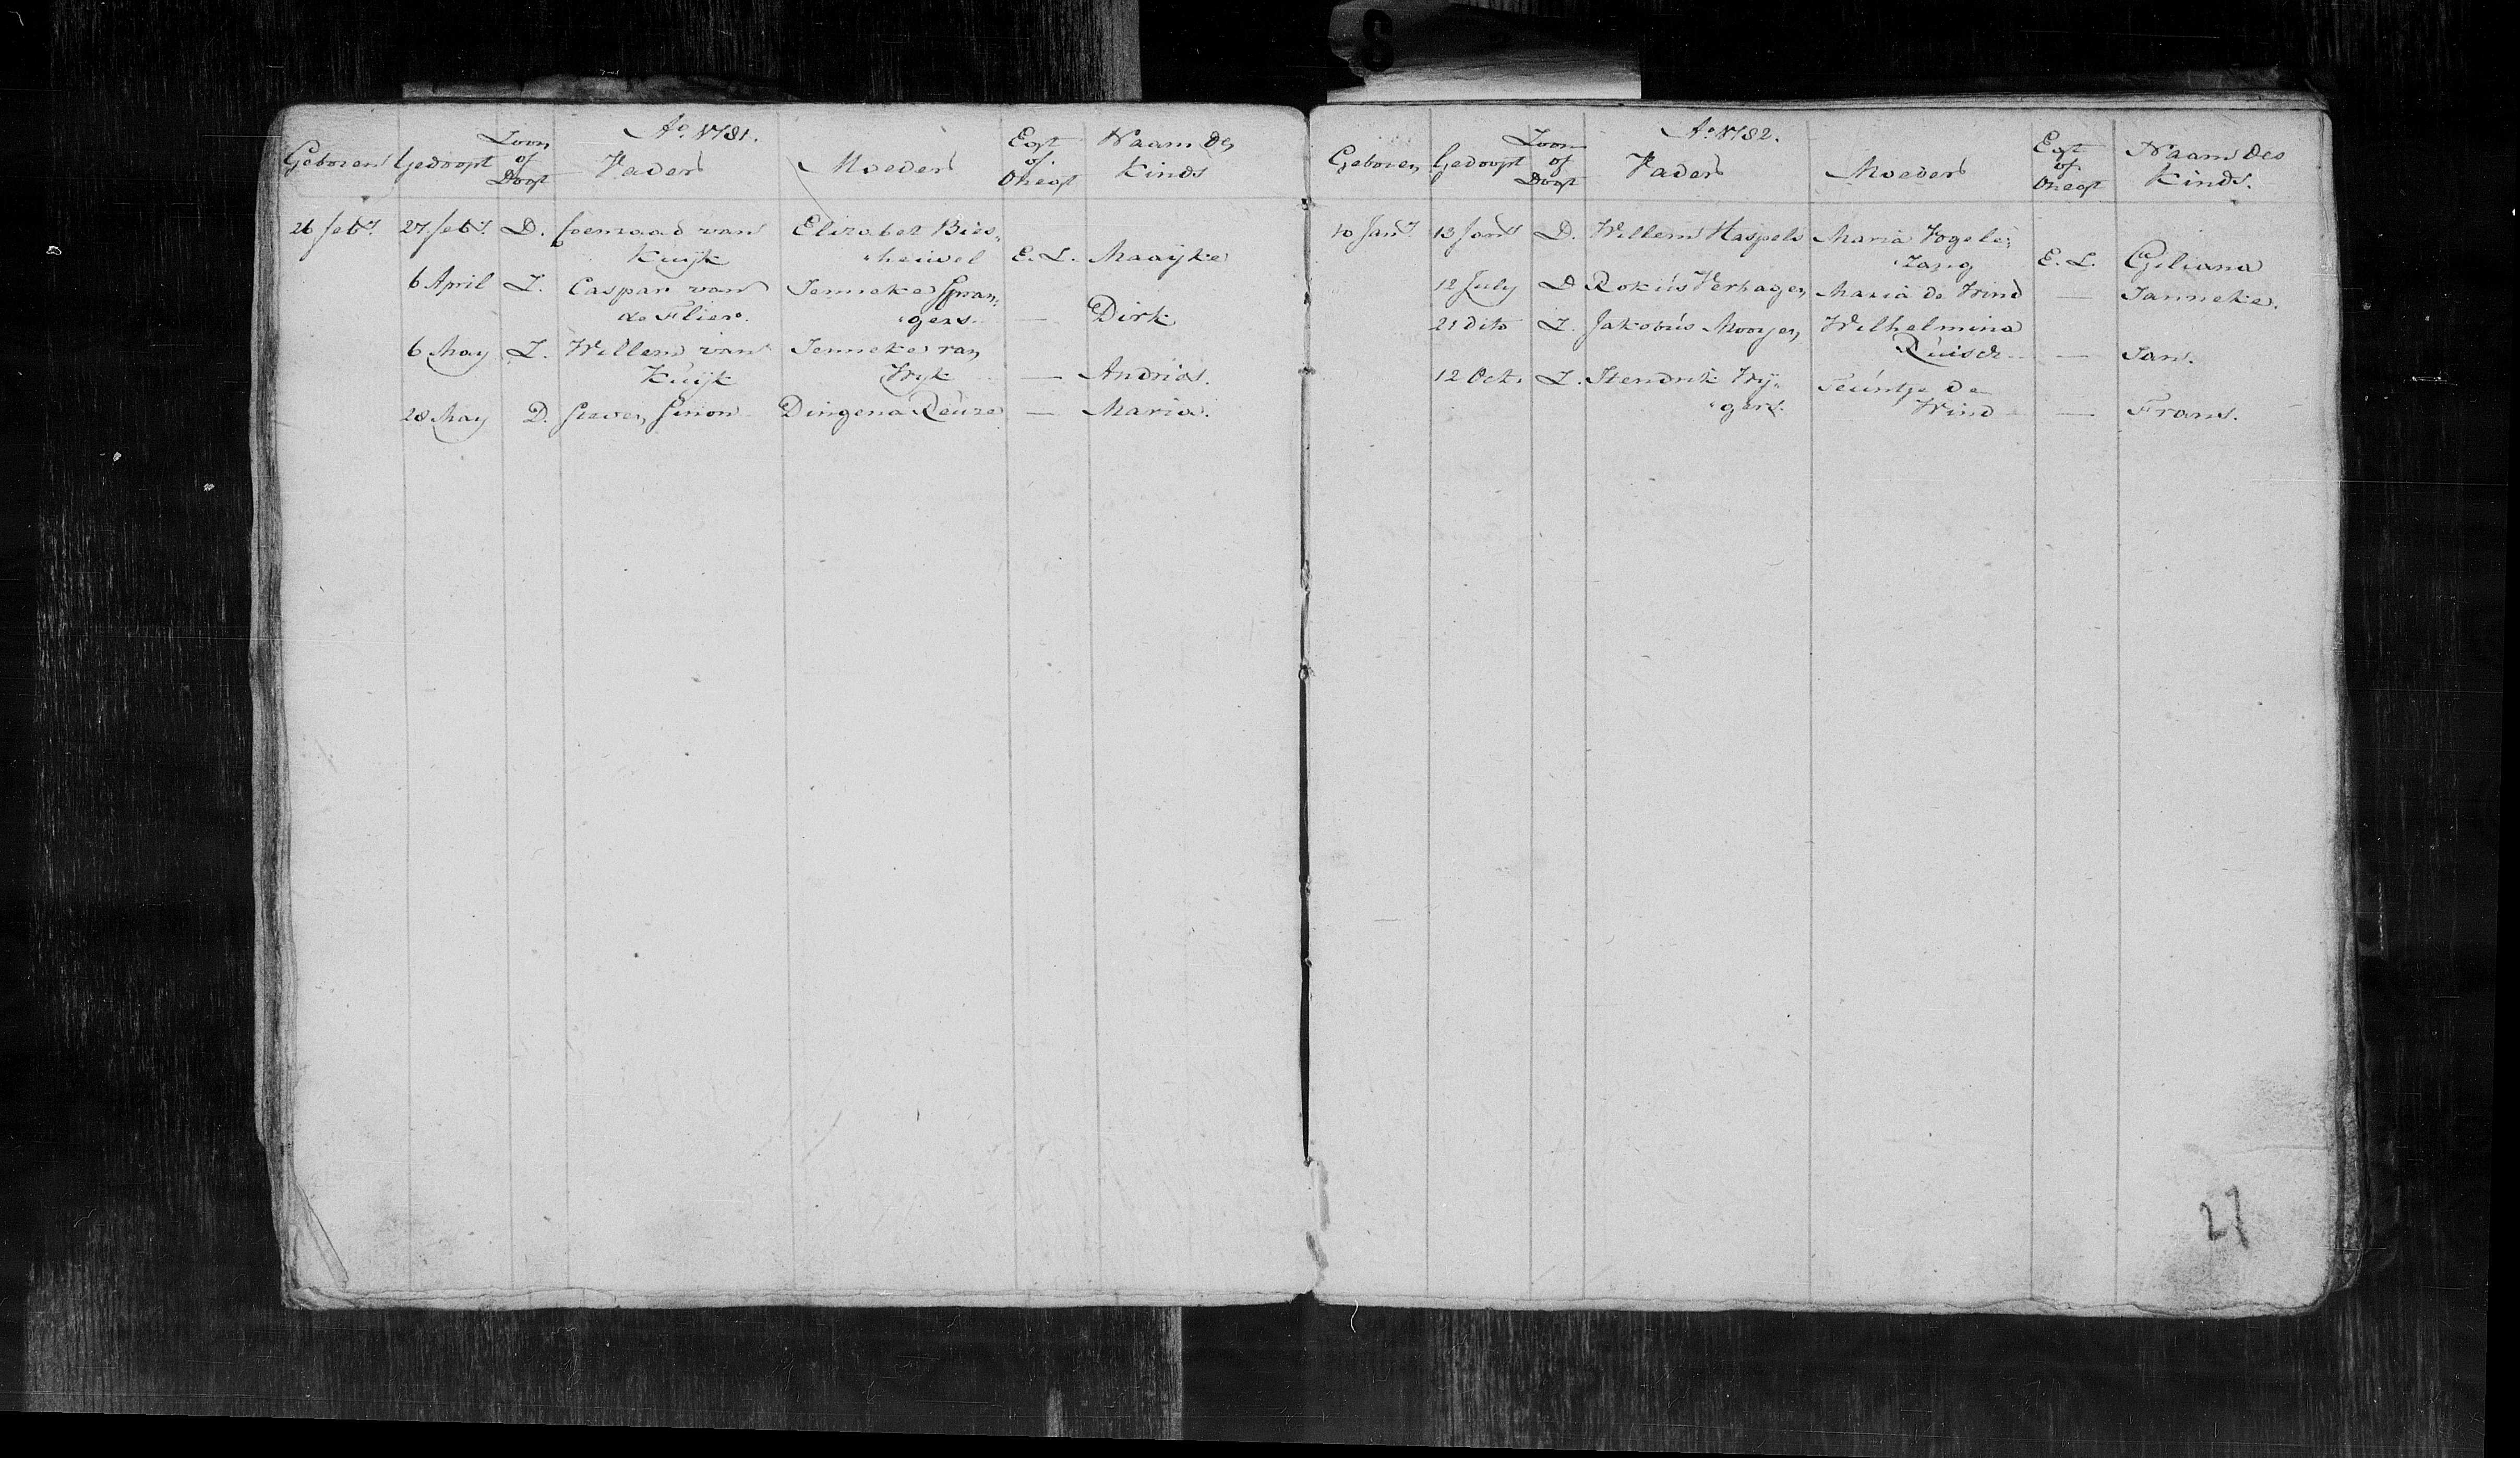 Ao. 1781.
Geboren Gedoopt Zoon of Dogt Vader Moeder Egt of Onegt Naam des Kinds
26 febr. 27 febr. D. Coenraad van Elizabet Bies-
Kuijk heuvel E. L. Maayke
6 April Z. Caspar van Jenneke Spran-
de Flier gers — Dirk
6 May Z. Willem van Jenneke van
Kuijk Wyk — Andries.
28 May D. Simon Dingena — Maria.
Ao. 1782.
Geboren Gedoopt Zoon of Dogt Vader Moeder Egt of Onegt Naam des Kinds.
10 Janr. 13 Janr. D. Willem Haspels Maria Vogele-
zang E. L. Giliana
12 July D Rokus Verhagen Maria de Wind — Janneke.
21 dito Z. Jakobus Mooyen Wilhelmina
Ruisch — Jan.
12 Oct. Z. Hendrik Wy- Teuntje de
gers. Wind — Frans.
27